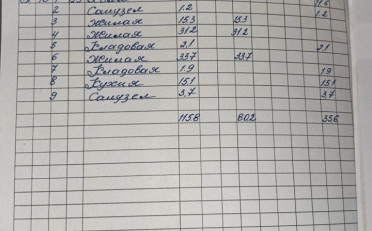 2 Санузел 1.2 1.2
3 Жилая 15.3 15.3
4 Жилая 31.2 31.2
5 Кладовая 2.1 2.1
6 Жилая 33.7 33.7
7 Кладовая 1.9 1.9
8 Кухня 15.1 15.1
9 Санузел 3.7 3.7
115.8 80.2 35.6